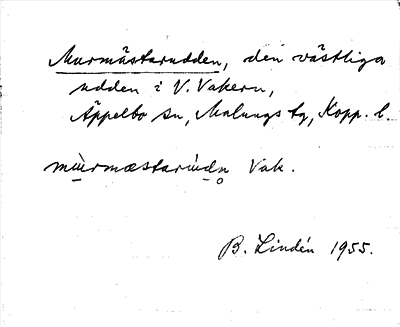 Murmästarudden, den västliga
udden i V. Vakern,
Äppelbo sn, Malungs tg, Kopp. l.
mùrmæstarúdn̥ Vak.
B. Lindén 1955.